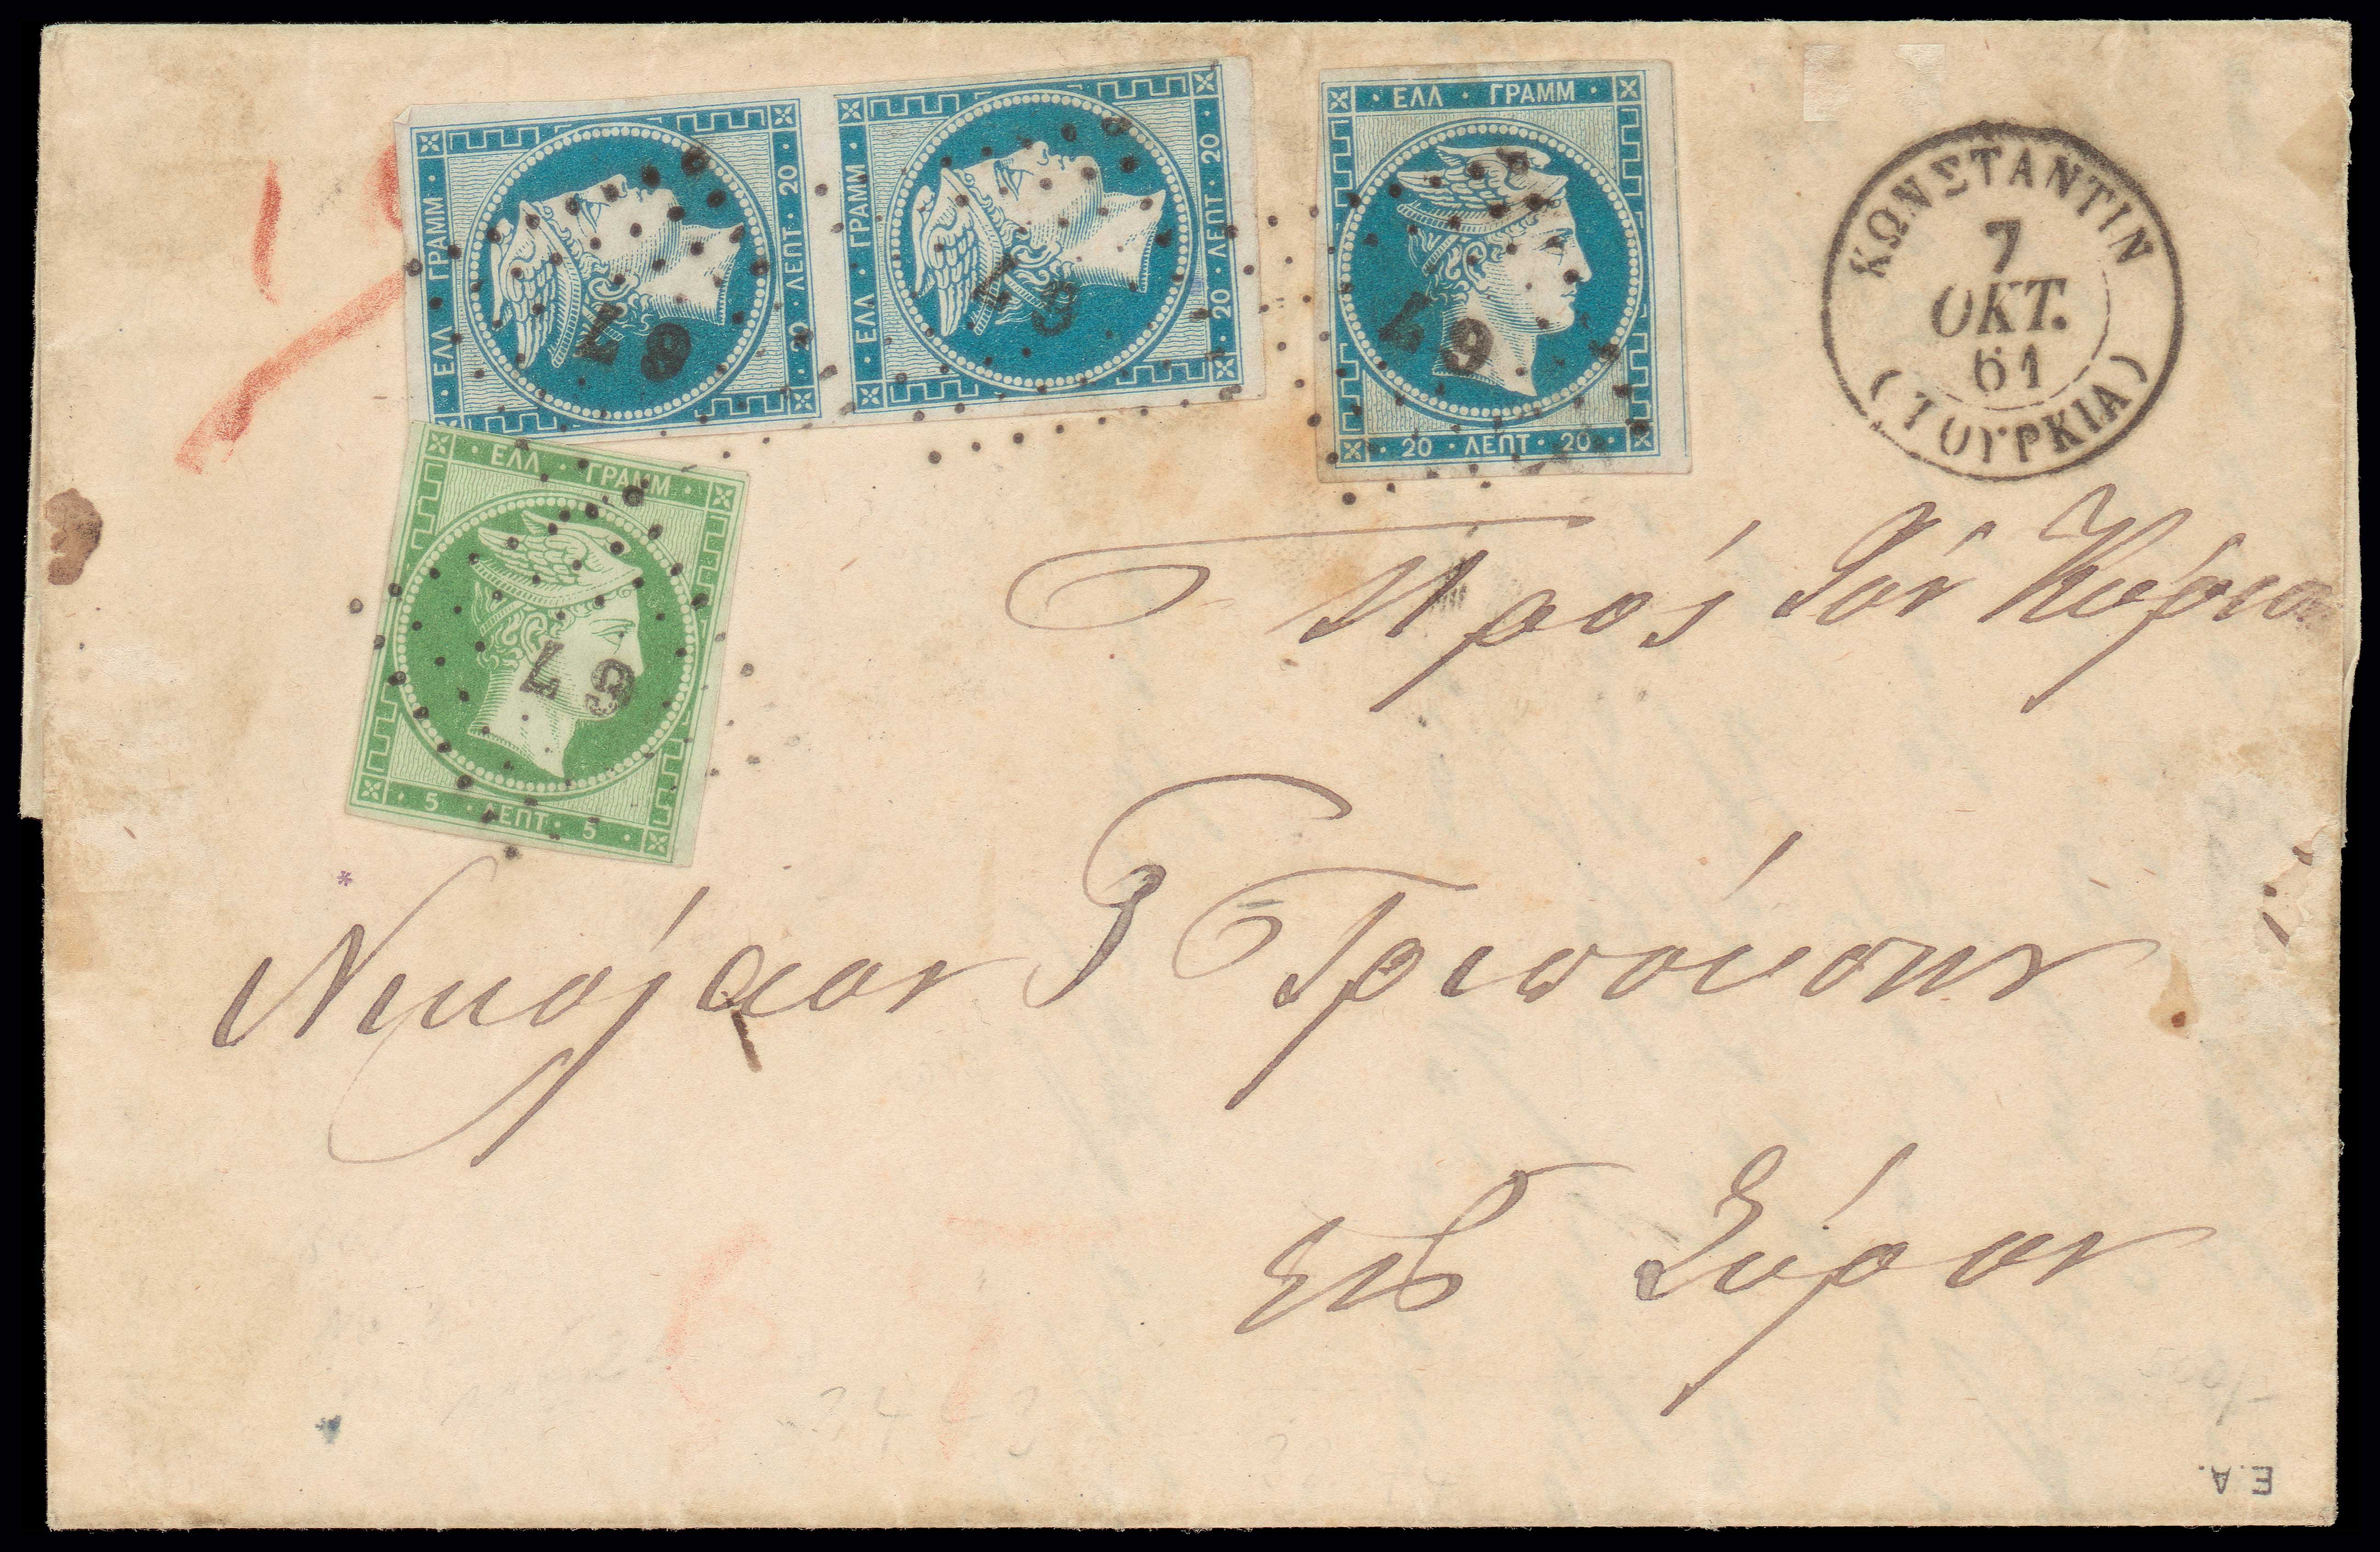 ΕΛΛ · ΓΡΑΜΜ
20 · ΛΕΠΤ · 20
67
ΕΛΛ · ΓΡΑΜΜ
20 · ΛΕΠΤ · 20
67
ΕΛΛ · ΓΡΑΜΜ
20 · ΛΕΠΤ · 20
67
ΚΩΝΣΤΑΝΤΙΝ
7
ΟΚΤ.
61
(ΤΟΥΡΚΙΑ)
ΕΛΛ · ΓΡΑΜΜ
5 · ΛΕΠΤ · 5
67
Πρός τόν Κύριο
Νικόλαον Τριπούσην
εις Σύρον
E.A.